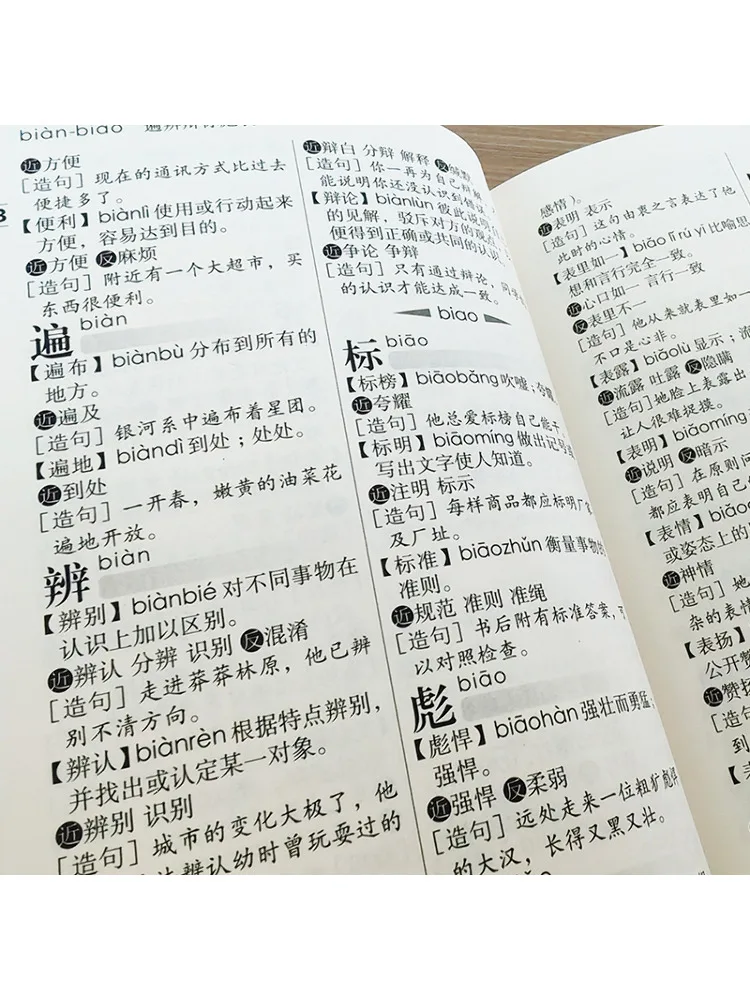 biàn-biāo
3
近方便
[造句] 现在的通讯方式比过去
便捷多了。
【便利】biànlì 使用或行动起来
方便，容易达到目的。
近方便 反麻烦
[造句] 附近有一个大超市，买
东西很便利。
遍 biàn
【遍布】biànbù 分布到所有的
地方。
近遍及
[造句] 银河系中遍布着星团。
【遍地】biàndì 到处；处处。
近到处
[造句] 一开春，嫩黄的油菜花
遍地开放。
辨 biàn
【辨别】biànbié 对不同事物在
认识上加以区别。
近辨认 分辨 识别 反混淆
[造句] 走进莽莽林原，他已辨
别不清方向。
【辨认】biànrèn 根据特点辨别，
并找出或认定某一对象。
近辨别 识别
[造句] 城市的变化太极了，他
辨认幼时曾玩耍过的
近辩白 分辩 解释 反
[造句] 你一再为自己辩解
能说明你还没认识到错
【辩论】biànlùn 彼此说明
的见解，驳斥对方的观点
便得到正确或共同的认识
近争论 争辩
[造句] 只有通过辩论，同学
的认识才能达成一致。
biao
标 biāo
【标榜】biāobǎng 吹嘘；夸耀
近夸耀
[造句] 他总爱标榜自己能干
【标明】biāomíng 做出记号
写出文字使人知道。
近注明 标示
[造句] 每样商品都应标明厂
及厂址。
【标准】biāozhǔn 衡量事物的
准则。
近规范 准则 准绳
[造句] 书后附有标准答案，可
以对照检查。
彪 biāo
【彪悍】biāohàn 强壮而勇猛；
强悍。
近强悍 反柔弱
[造句] 远处走来一位粗犷彪悍
的大汉，长得又黑又壮。
感情）。
近表明 表示
[造句] 这句由衷之言表达了他
此时的心情。
【表里如一】biǎo lǐ rú yī 比喻思
想和言行完全一致。
近心口如一 言行一致
反表里不一
[造句] 他从来就表里如一
不口是心非。
【表露】biǎolù 显示；流
近流露 吐露 反隐瞒
[造句] 她脸上表露出
让人很难捉摸。
【表明】biǎomíng
近说明 反暗示
[造句] 在原则问
都应表明自己
【表情】biǎo
或姿态上的
近神情
[造句] 她
杂的表情
【表扬】
公开赞
近赞扬
[造
到
【表